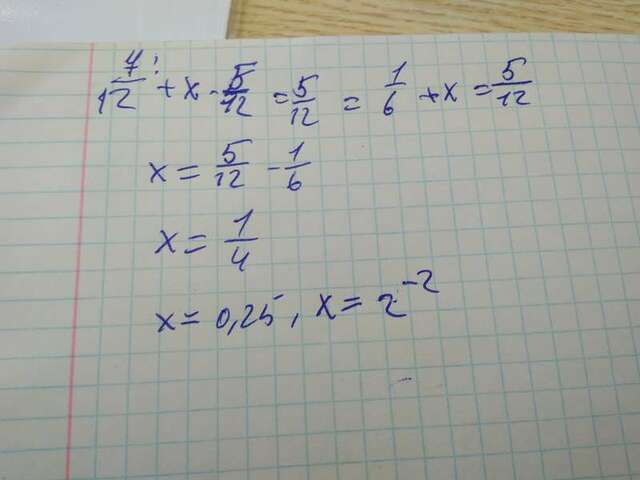 7/12 + x - 5/12 = 5/12 = 1/6 + x = 5/12
x = 5/12 - 1/6
x = 1/4
x = 0,25, x = 2^-2